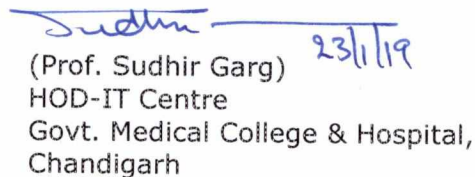 Sudhir
23/1/19
(Prof. Sudhir Garg)
HOD-IT Centre
Govt. Medical College & Hospital,
Chandigarh